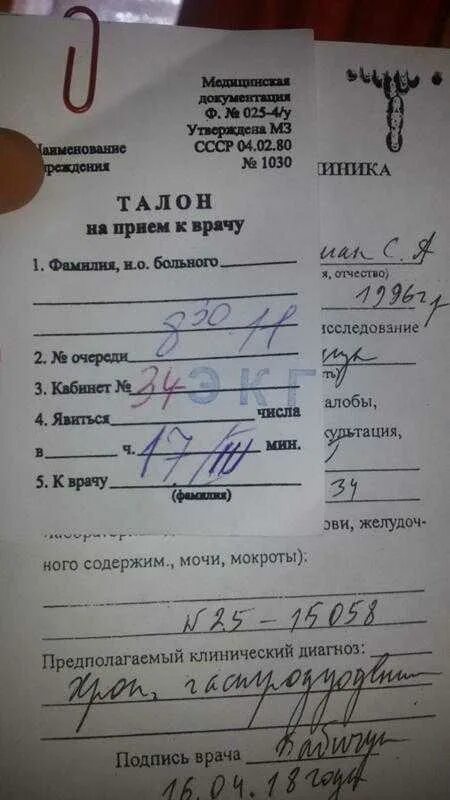 Медицинская
документация
Ф. № 025-4/у
Утверждена МЗ
Наименование СССР 04.02.80
учреждения № 1030
ТАЛОН
на прием к врачу
1. Фамилия, и.о. больного
8 30
2. № очереди
3. Кабинет № 34 ЭКГ
4. Явиться числа
в ч. 17/III мин.
5. К врачу
(фамилия)
ИНИКА
С. А
я, отчество)
1996 г.
исследование
ть)
алобы,
сультация,
34
ови, желудоч-
ного содержим., мочи, мокроты):
№ 25 - 15058
Предполагаемый клинический диагноз:
Хрон. гастродуоденит
Подпись врача
16.04.18 года